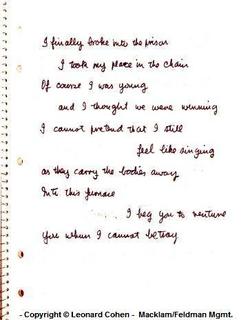 I finally broke into the prison
I took my place in the chain
Of course I was young
and I thought we were winning
I cannot pretend that I still
feel like singing
as they carry the bodies away
Into this furnace
I beg you to venture
You whom I cannot betray
- Copyright © Leonard Cohen - Macklam/Feldman Mgmt.